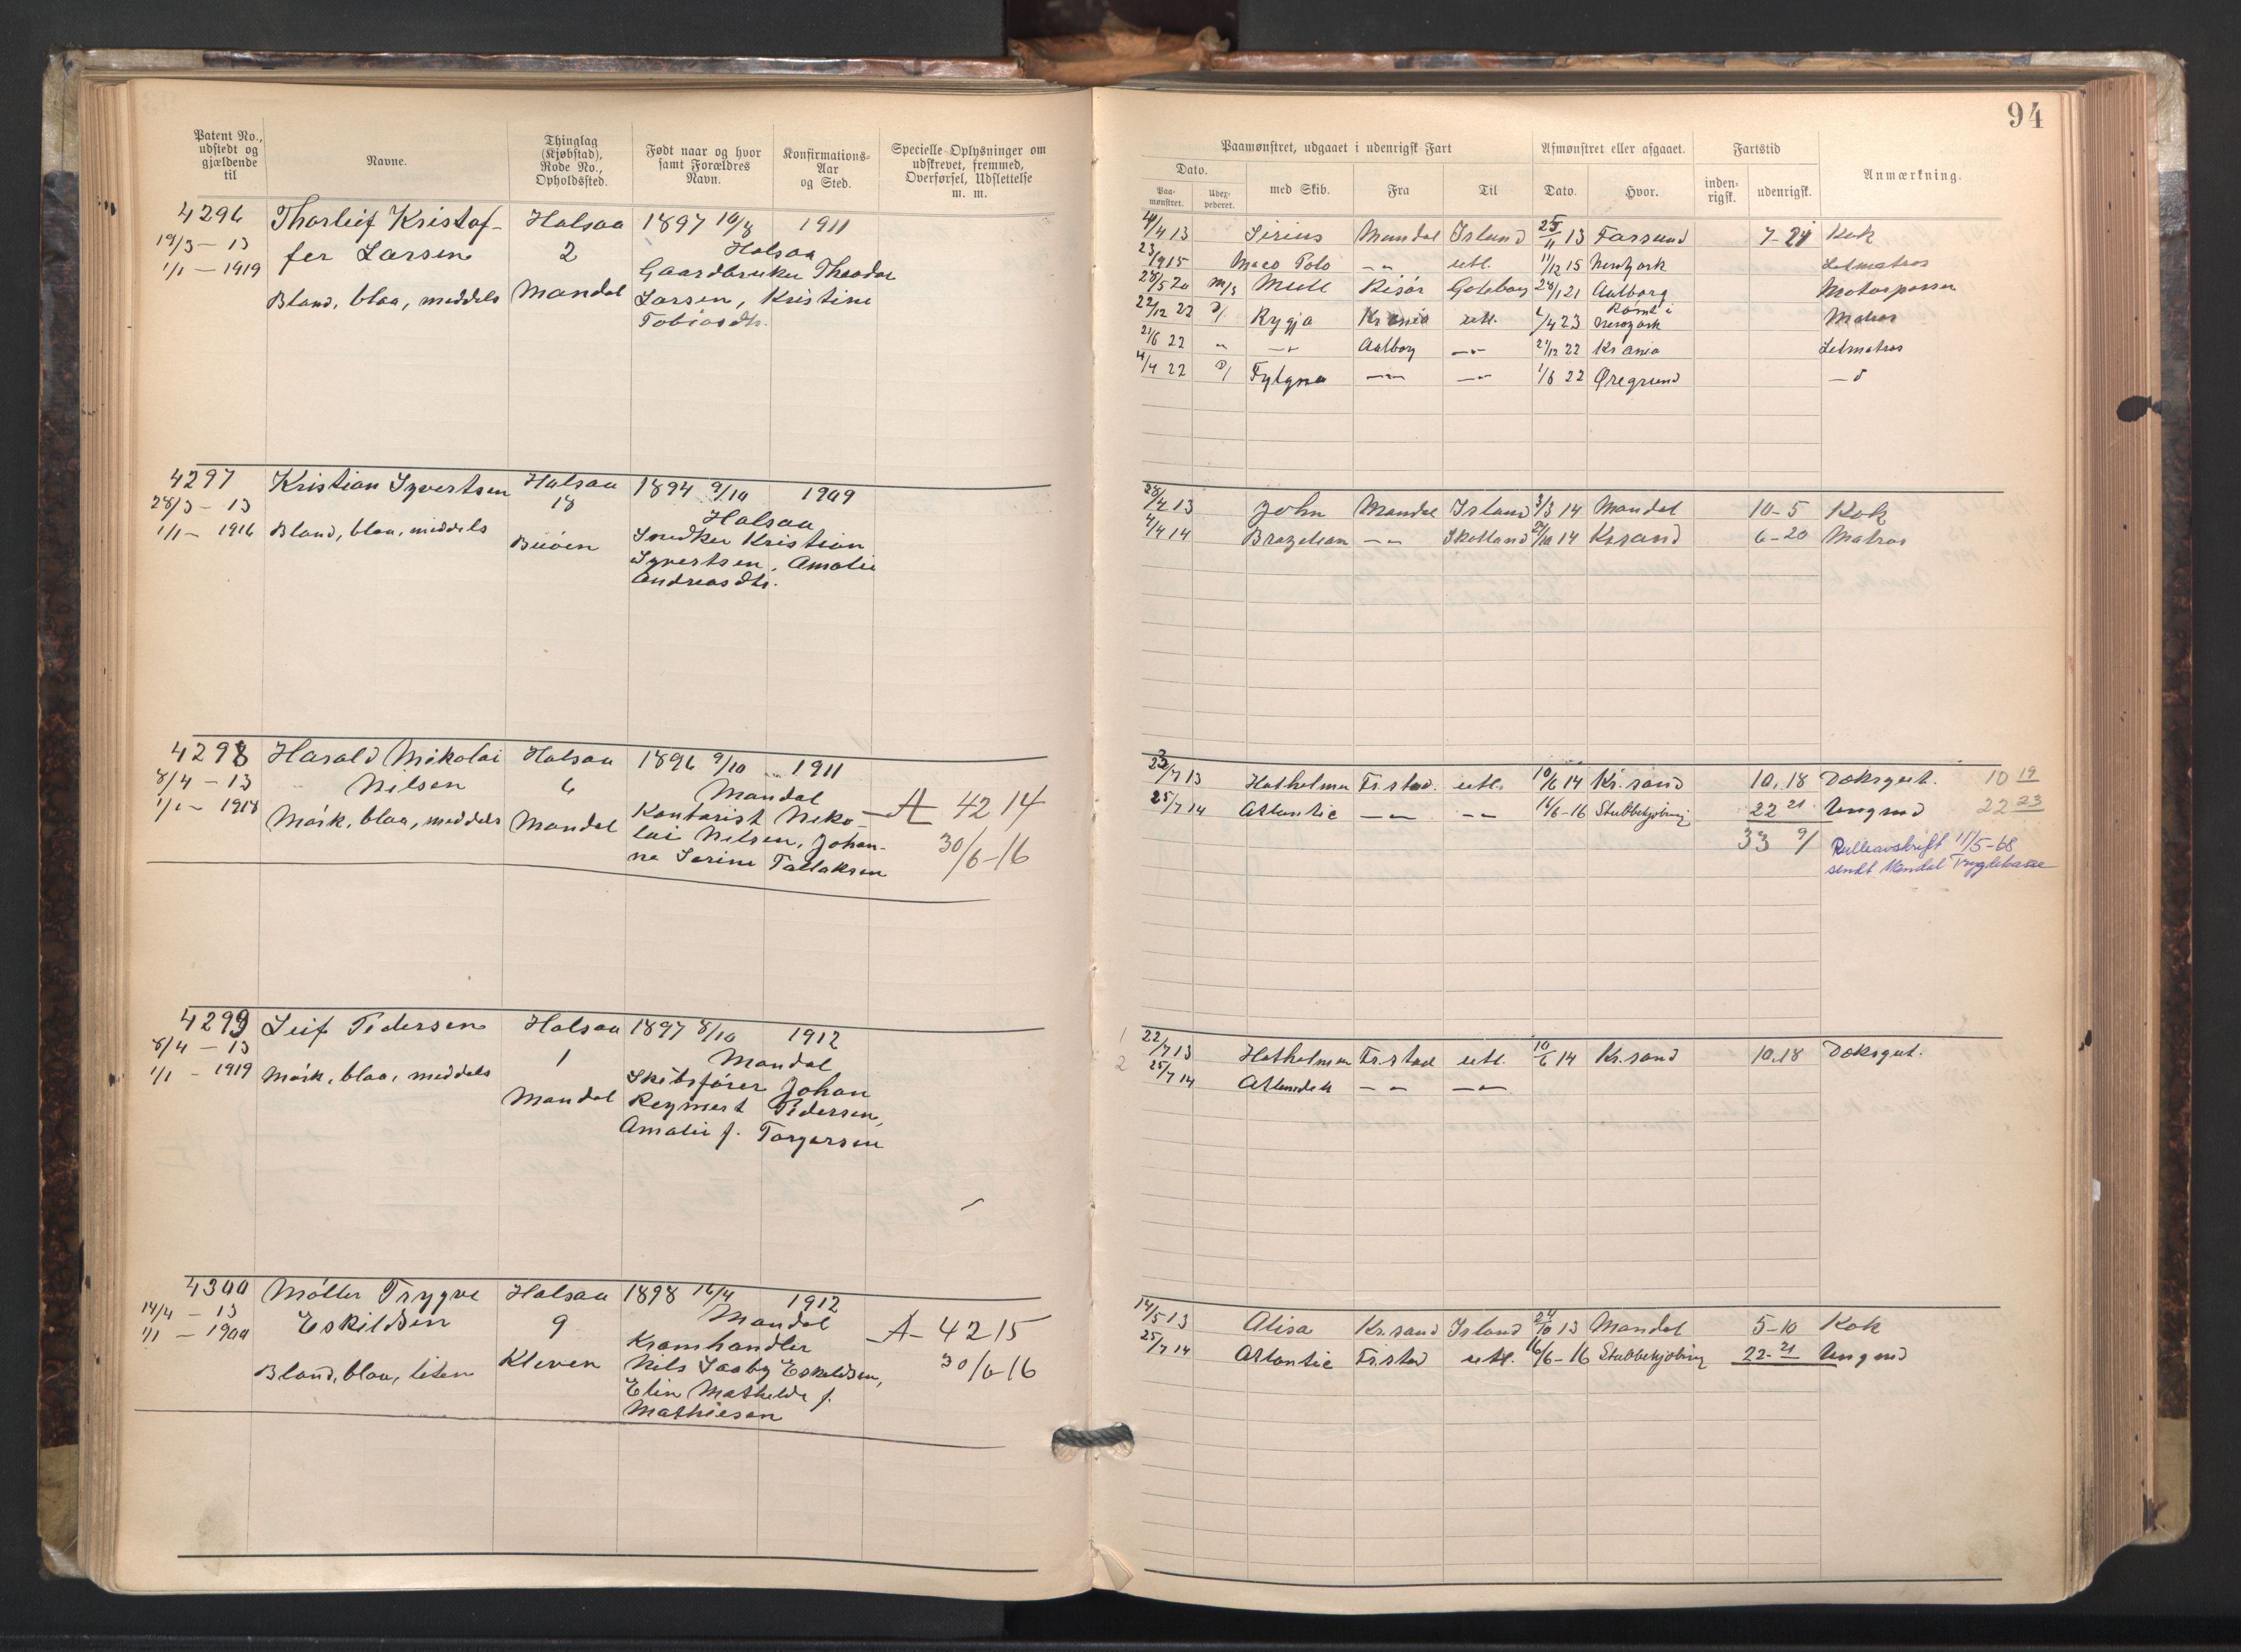 94
Patent No., udstedt og gjældende til
Navne.
Thinglag (Kjøbstad), Rode No., Opholdssted.
Født naar og hvor samt Forældres Navn.
Konfirmations-Aar og Sted.
Specielle Oplysninger om udskrevet, fremmed, Overførsel, Udslettelse m. m.
Paamønstret, udgaaet i udenrigsk Fart
Afmønstret eller afgaaet.
Fartstid
Anmærkning.
Dato.
Paa-mønstret.
Udex-pederet.
med Skib.
Fra
Til
Dato.
Hvor.
inden-rigsk.
udenrigsk.
4296 Thorleif Kristof- Halsaa 1897 10/8 1911
19/3 - 13 fer Larsen 2 Halsaa
1/1 - 1919 Gaardbruker Theodor
Blond, blaa, meddels Mandal Larsen, Kristine
Tobiasdtr.
4/4 13 Sirius Mandal Island 25/11 13 Farsund 7-21 Kok
23/9 15 Marco Polo -"- utl. 11/12 15 Newyork Letmatros
28/5 20 m/s Risör Goteborg 28/1 21 Aalborg Motorpasser
22/12 22 D/ Rygja Kr ania utl. /4 23 Rømt i Newyork Matros
21/6 22 " -"- Aalborg -"- 21/12 22 Kr ania Letmatros
4/4 22 D/ -"- -"- 1/6 22 Øregrund
4297 Kristian Syvertsen Halsaa 1894 9/10 1909
28/3 - 13 18 Halsaa
1/1 - 1916 Blond, blaa, meddels Snedker Kristian
Syvertsen, Amalie
Andreasdtr.
28/2 13 John Mandal Island 3/3 14 Mandal 10-5 Kok
4/4 14 Brazelian -"- Skotland 24/10 14 Krsand 6-20 Matros
4298 Harald Nikolai Halsaa 1896 9/10 1911
8/4 - 13 Nilsen 6 Mandal
1/1 - 1918 Mörk, blaa, meddels Mandal Kontorist Niko- A 4214
lai Nilsen, Johan- 30/6-16
ne Sarine Tallaksen
23/7 13 Hatholmen Fr.stad. utl. 10/6 14 Kr.sand 10.18 Doksgut. 10 19
25/7 14 Atlantic -"- -"- 16/6-16 Stubbekjøbing 22 21 Ungmd 22 23
33 9/ Rulleavskrift 11/5-68
sendt Mandal Trygdekasse
4299 Leif Pedersen Halsaa 1897 8/10 1912
8/4 - 13 1 Mandal
1/1 - 1919 Mörk, blaa, meddels Skibsfører Johan
Mandal Reymert Pedersen,
Amalie f. Torgersen
1 22/7 13 Hatholmen Fr.stad utl. 10/6 14 Kr.sand 10.18 Doksgut.
2 25/7 14 -"- -"-
4300 Möller Trygve Halsaa 1898 16/4 1912
14/4 - 13 Eskildsen 9 Mandal
1/1 - 1900 Kramhandler A- 4215
Blond, blaa, liten Kleven Nils Eskildsen, 30/6-16
Elin Mathilde f.
Mathiesen
14/5 13 Alisa Kr.sand Island 24/10 13 Mandal 5-10 Kok
25/7 14 Atlantic Fr.stad utl. 16/6-16 Stubbekjøbing 22-21 Ungmd